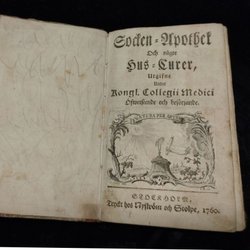 Socken-Apothek
Och någre
Hus-Curer,
Utgifne
Under
Kongl. Collegii Medici
Öfwerseende och besörjande.
STOCKHOLM,
Tryckt hos Nyström och Stolpe, 1760.